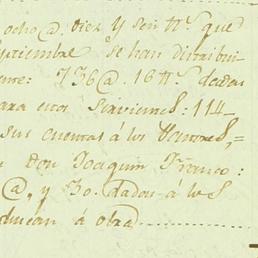 ocho @. diez y seis tt.s que
eptiembre se han distribui
ente: 736 @. 16 tt.s dadas
para estos sirvientes: 114-
sus cuentas á los
n Don Joaquin Franco:
@, y 30. dadas á los
educan á obra